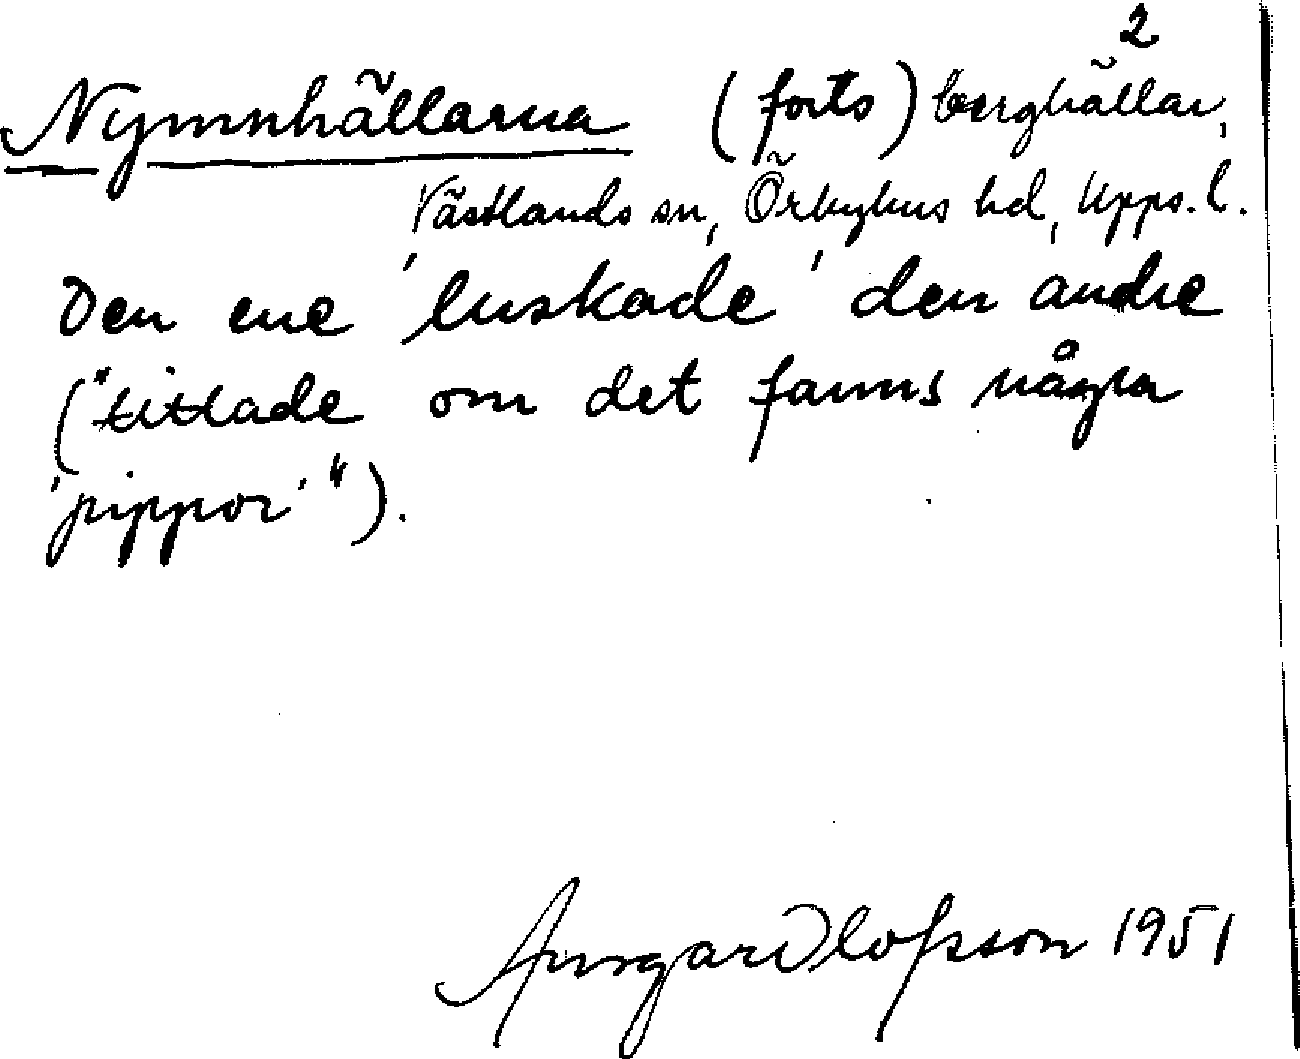 2
Nymnhällarna (forts) berghällar,
Västlands sn, Örbyhus hd, Upps. l.
Den ene 'luskade' den andre
("tittade om det fanns några
'pippor'").
Ansgar Olofsson 1951